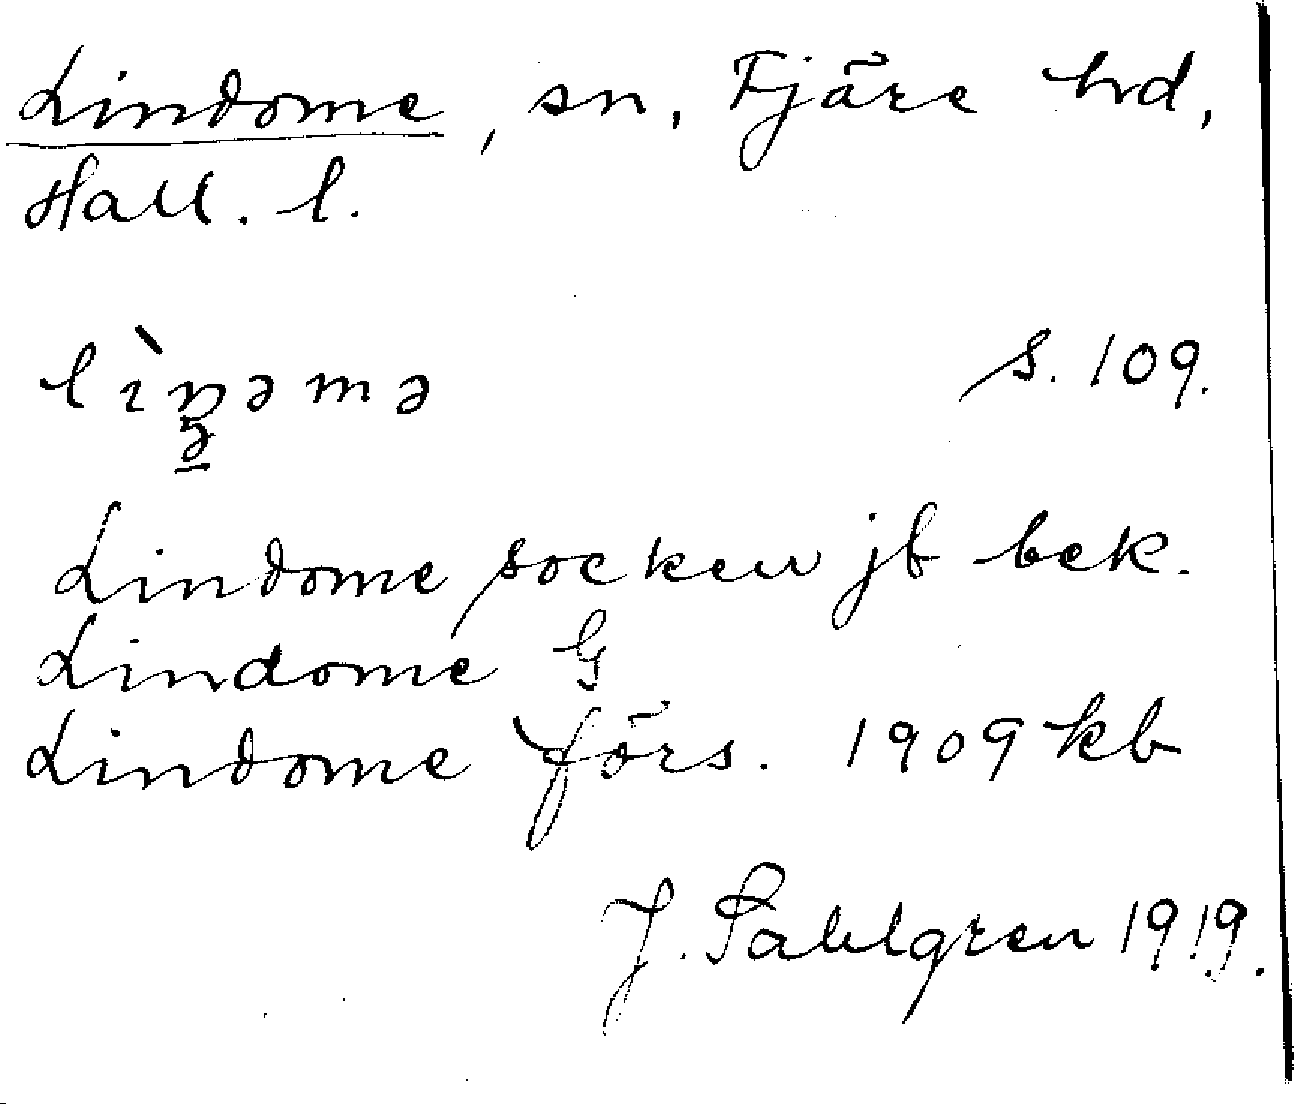 Lindome, sn, Fjäre hd,
Hall. l.
lìn̥əmə s. 109.
Lindome socken jb bek.
Lindome G
Lindome förs. 1909 kb
J. Sahlgren 1919.